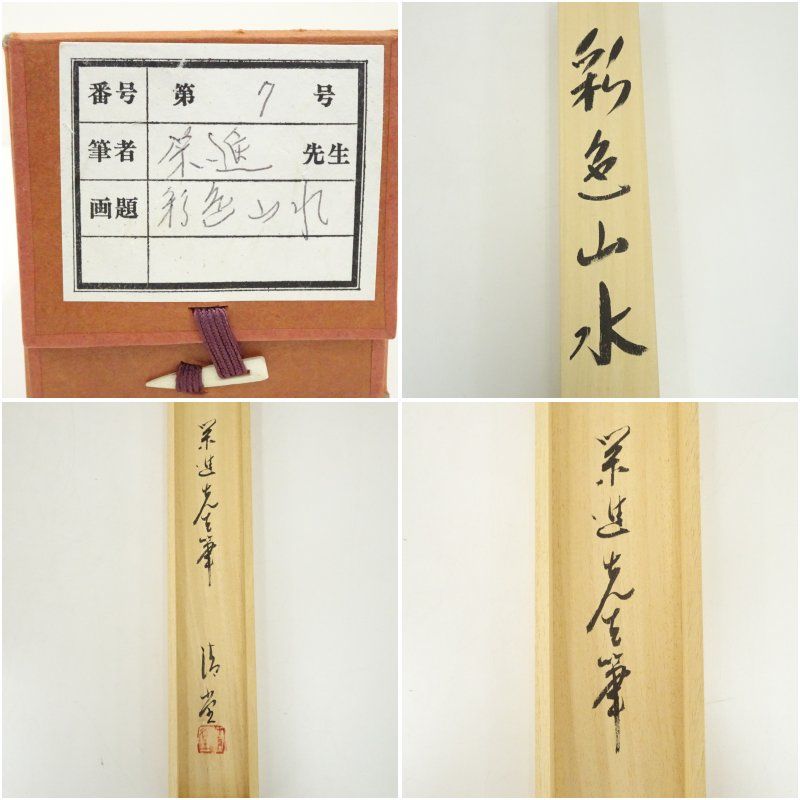 番号 第 7 号
筆者 栄進 先生
画題 彩色山水
彩色山水
栄進先生筆
清堂
栄進先生筆